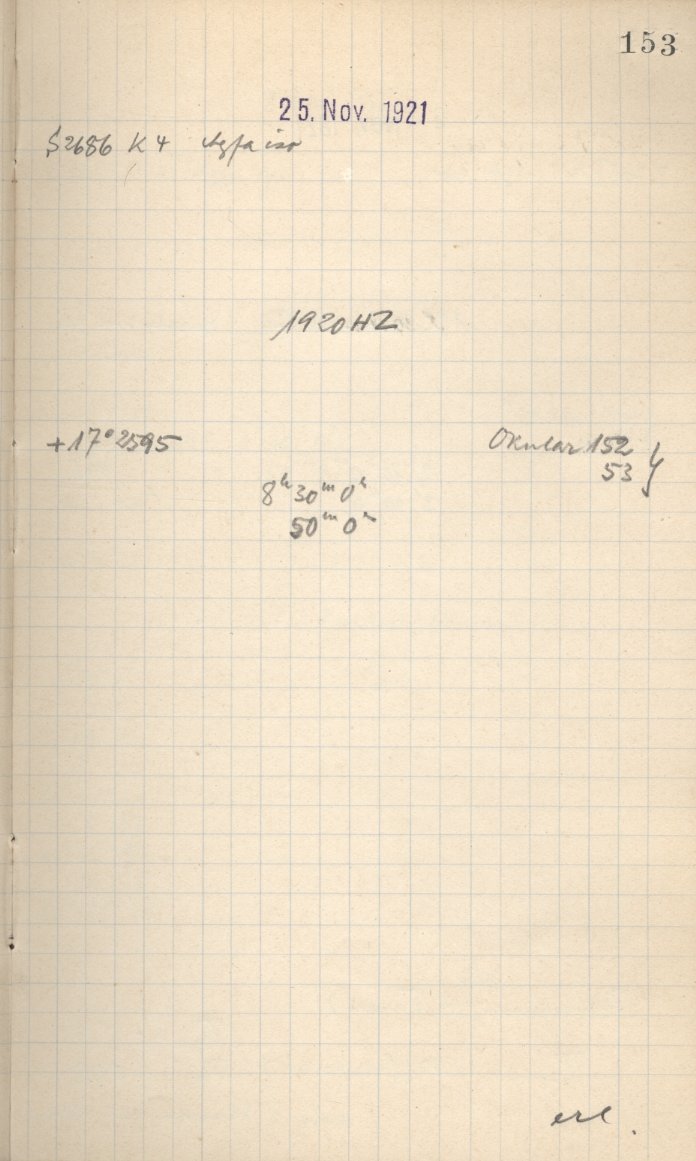 153
25. Nov. 1921
S2686 K4 Agfa iso
1920 HZ
+17° 2595
Okular 152
53
8ʰ 30ᵐ 0ˢ
50ᵐ 0ˢ
erl.